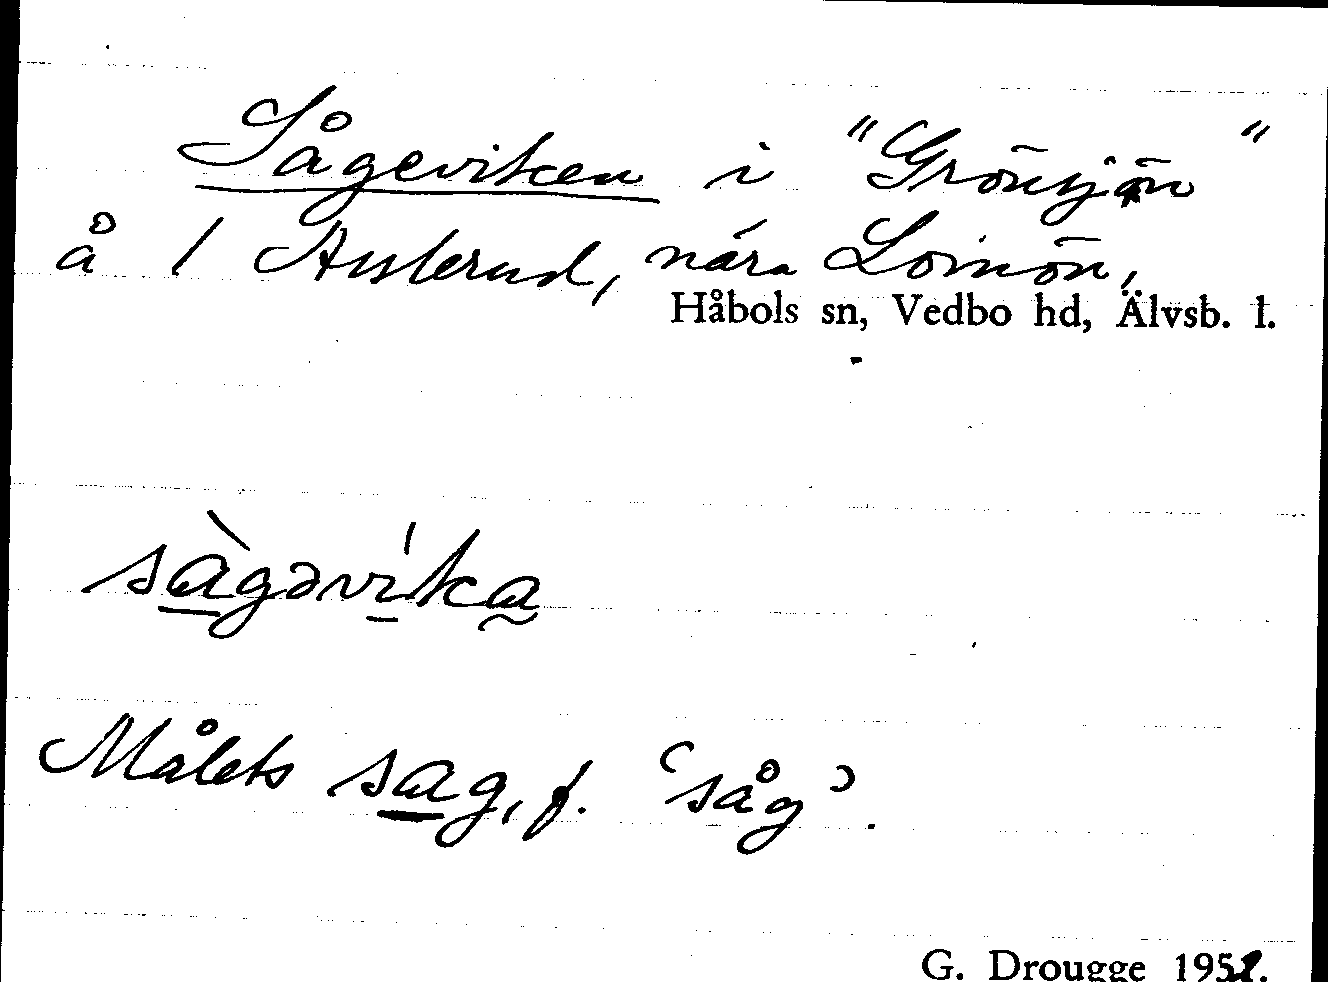 Sågeviken i "Grönsjön"
å 1 Austerud, nära Loinön,
Håbols sn, Vedbo hd, Älvsb. l.
sàgəvíka
Målets sag, f. 'såg'.
G. Drougge 195